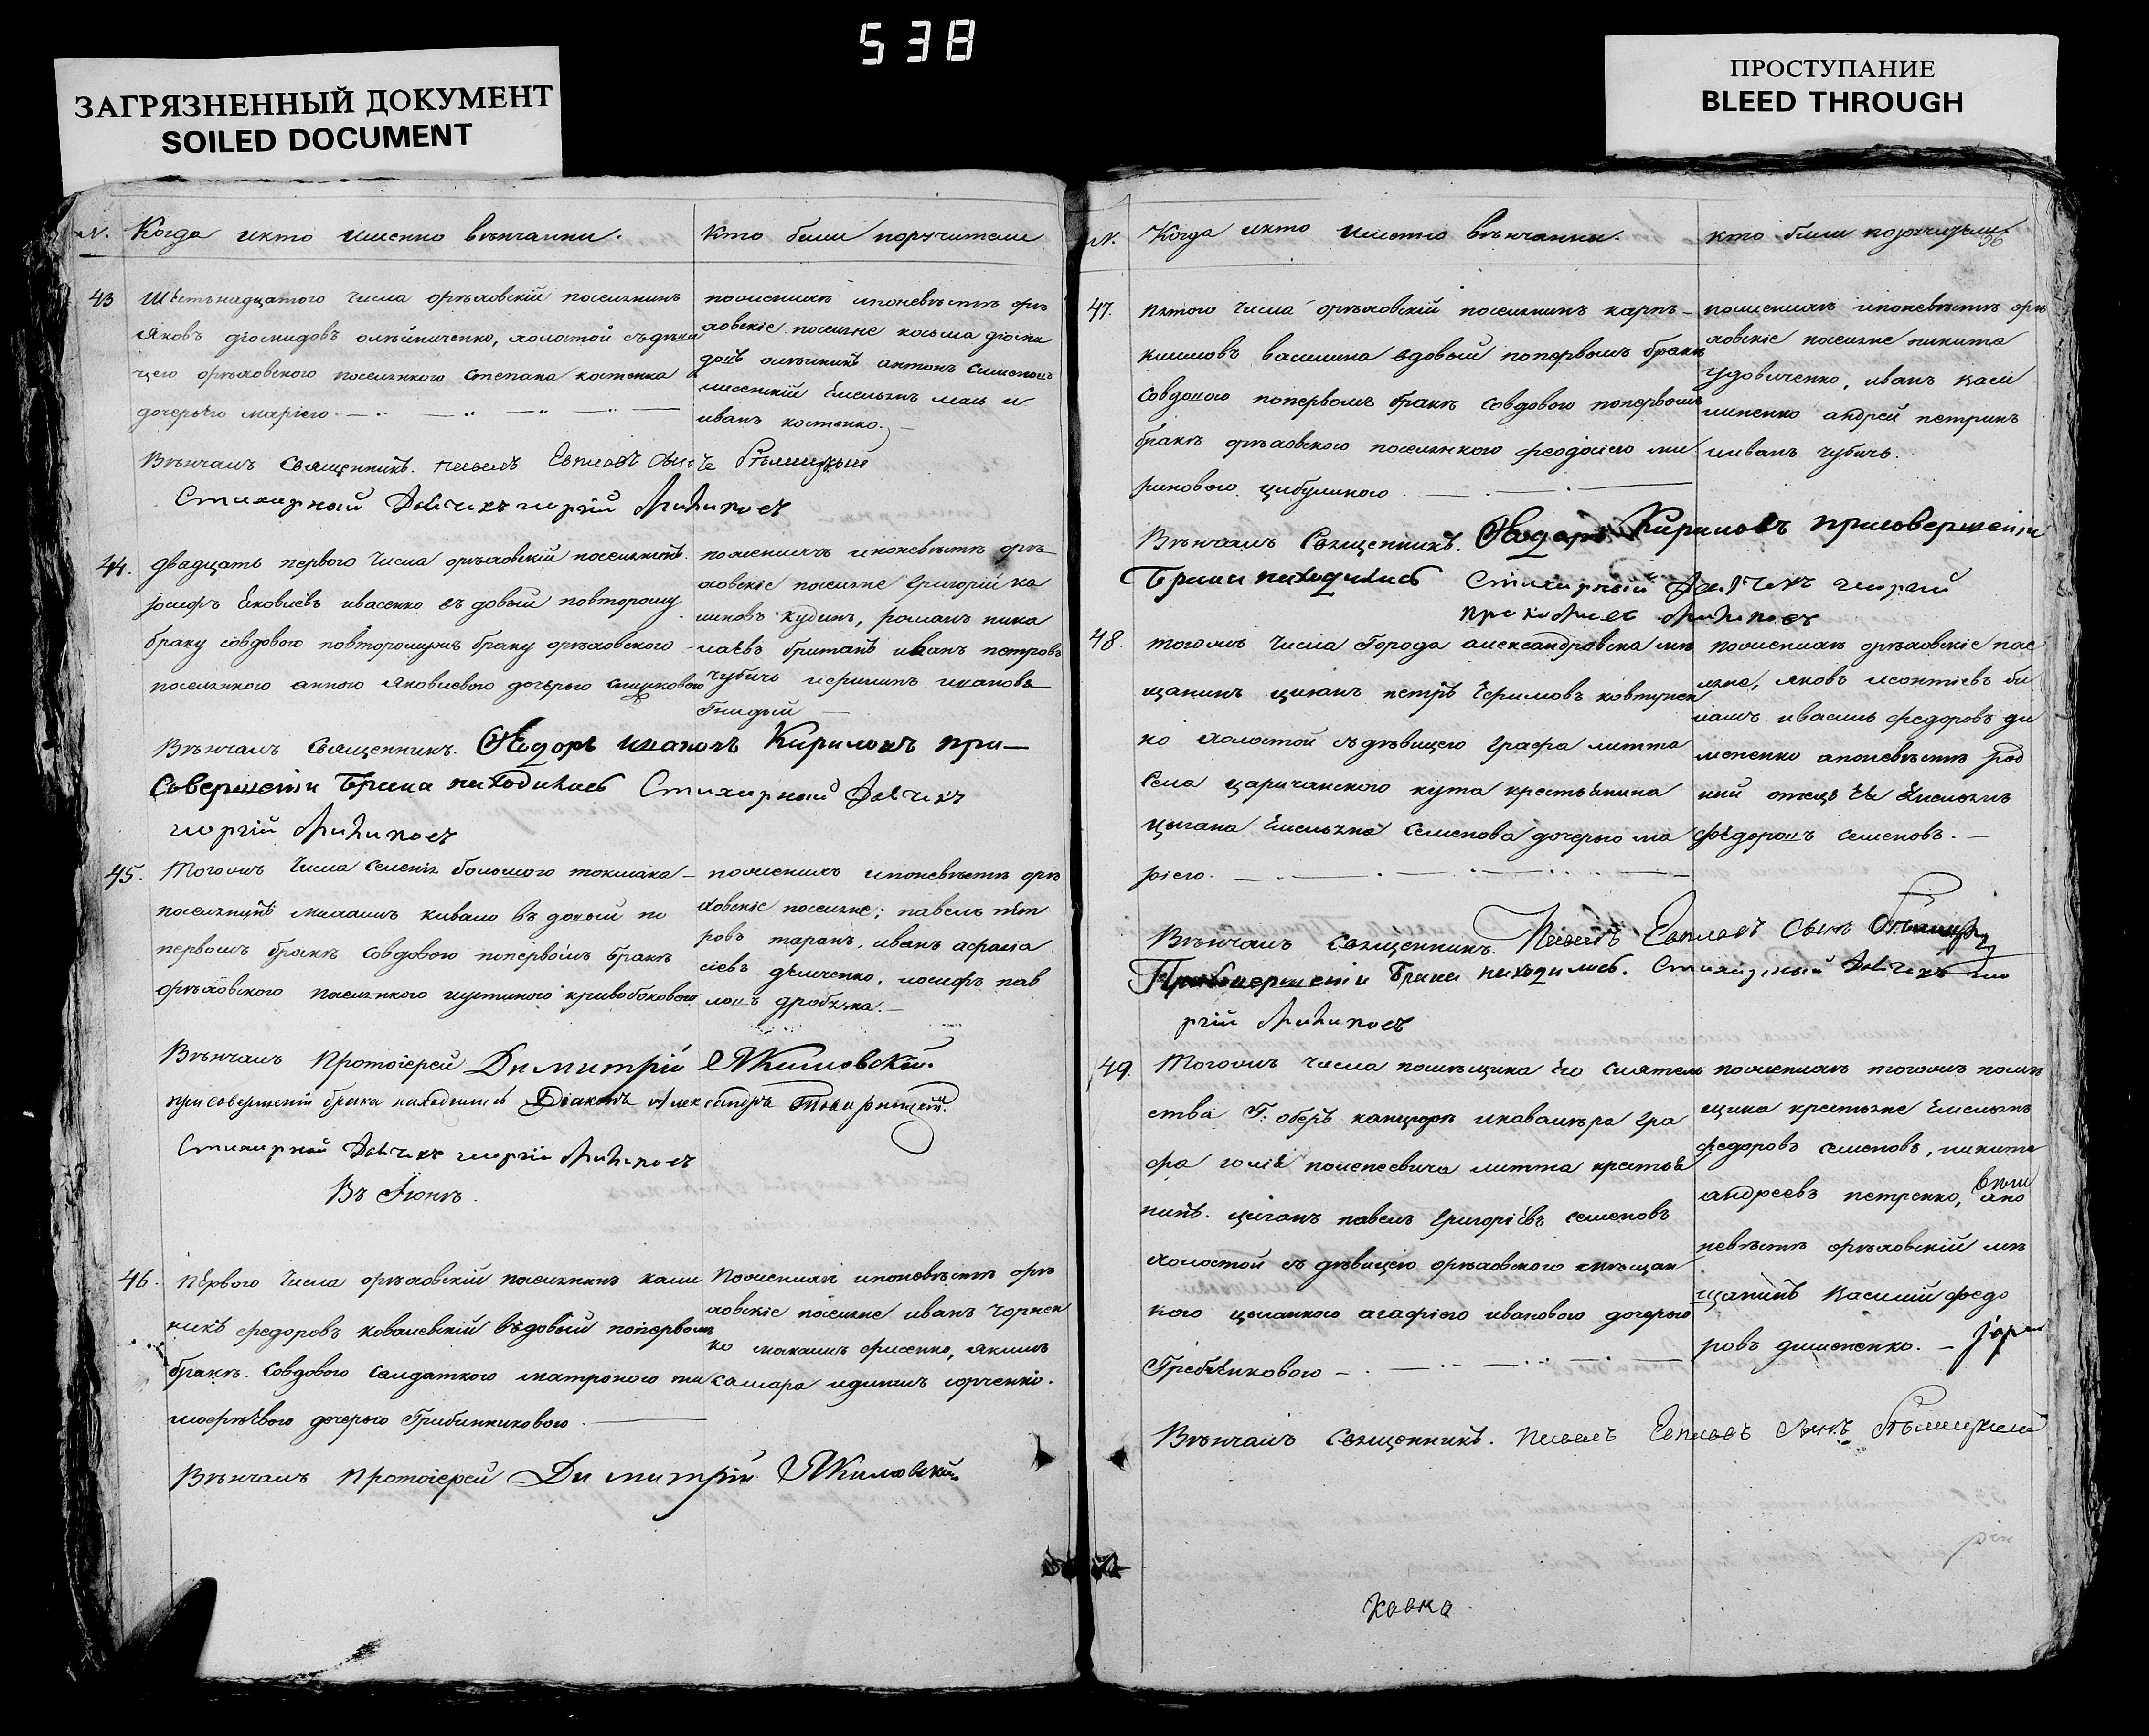 538
ЗАГРЯЗНЕННЫЙ ДОКУМЕНТ
SOILED DOCUMENT
ПРОСТУПАНИЕ
BLEED THROUGH
N. Когда икто именно венчанни.
Кто были поручители
43 Шестьнадцатого числа орѣховскій поселянинъ
Яковъ діомидовъ олѣйниченко, холостой съдѣви
цею орѣховского поселянкою степана костенка
дочерью маріею.
поженихѣ ипоневѣстѣ орѣ
ховскіе поселяне косьма діоми
довъ олѣйникъ антонъ
Емельянъ и
иванъ костенко.
Вѣнчалъ Священникъ. павелъ Евпловъ
Стихарный Дьячекъ георгій
44. двадцать первого числа орѣховскій поселянинъ.
Іосифъ Яковлевъ ивасенко въдовый повторому
браку совдовою повторомужъ браку орѣховского
поселянкою анною Яковлевою дочерью
поженихѣ ипоневѣстѣ орѣ
ховскіе поселяне григорій ка
кудинъ, романъ нико
лаевъ британъ иванъ петровъ
чубичь иванова
Гнидый
Вѣнчалъ Священникъ. Ѳеодоръ ивановъ Кириловъ при-
Совершеніи Брака находились Стихарный Дьячекъ
георгій
45. Тогожъ числа селенія большого токмака
поселянинъ михаилъ кивало въдовый по
первомъ бракѣ совдовою попервомъ бракѣ
орѣховского поселянкою иустиною кривобоковою
поженихѣ ипоневѣстѣ орѣ
ховскіе поселяне: павелъ пет
ровъ таранъ, иванъ афана
сіевъ демченко, иосифъ пав
ловъ дробязка.
Вѣнчалъ Протоіерей Димитрій
при совершеніи брака находились Діаконъ Александръ
Стихарный Дьячекъ георгій
Въ Іюнѣ.
46. Перваго числа орѣховскій поселянинъ кали
никъ федоровъ ковалевскій въдовый попервомъ
бракѣ. совдовою салдаткою матроною ти
мофѣевою дочерью Грибинниковою
Поженихѣ ипоневѣстѣ орѣ
ховскіе поселяне иванъ чорнен
ко фисенко, якимъ
самара юрченко.
Вѣнчалъ Протоіерей Димитрій
N. Когда икто именно вѣнчанни.
кто были поручители
47. пятого числа орѣховскій поселянинъ карпъ
климовъ василина вдовый попервомъ бракѣ
Совдовою попервомъ бракѣ совдовою попервомъ
бракѣ орѣховского поселянкою феодосіею ми
роновою цибулиною
поженихѣ ипоневѣстѣ орѣ
ховскіе поселяне никита
удовиченко, иванъ васи
линенко андрей петринъ
ииванъ чубичь.
Вѣнчалъ Священникъ. Ѳеодоръ Кириловъ присовершеніи
Брака находились Стихарный Дьячекъ георгій
48. тогожъ числа Города александровска мѣ
щанинъ циганъ петръ Ефимовъ ковтунен
ко холостой съдѣвицею графа литта
села царичанского кута крестьянина
цыгана Емельяна семенова дочерью ма
ріею.
поженихѣ орѣховскіе посе
ляне, яковъ леонтіевъ би
ивасиль федоровъ ди
менко апоневѣстѣ род
ной отецъ ея Емельянъ
федоровъ семеновъ.
Вѣнчалъ Священникъ. Павелъ Евпловъ Сынъ
Присовершеніи Брака находились. Стихарный Дьячекъ гео
ргій
49. Тогожъ числа помѣщика Его Сіятель
ства Г: оберъ камергера икавалѣра гра
фа юлія помпеевича литта крестья
нинъ. циганъ павелъ григоріевъ семеновъ
холостой съ дѣвицею орѣховского мѣщан
кою цыганкою агафіею ивановою дочерью
Гребѣниковою
поженихѣ тогожъ помѣ
щика крестьяне Емельянъ
федоровъ семеновъ, никита
андреевъ петренко, апо
невѣстѣ орѣховскій мѣ
щанинъ Василій федо
ровъ
Вѣнчалъ Священникъ. Павелъ Евпловъ Сынъ